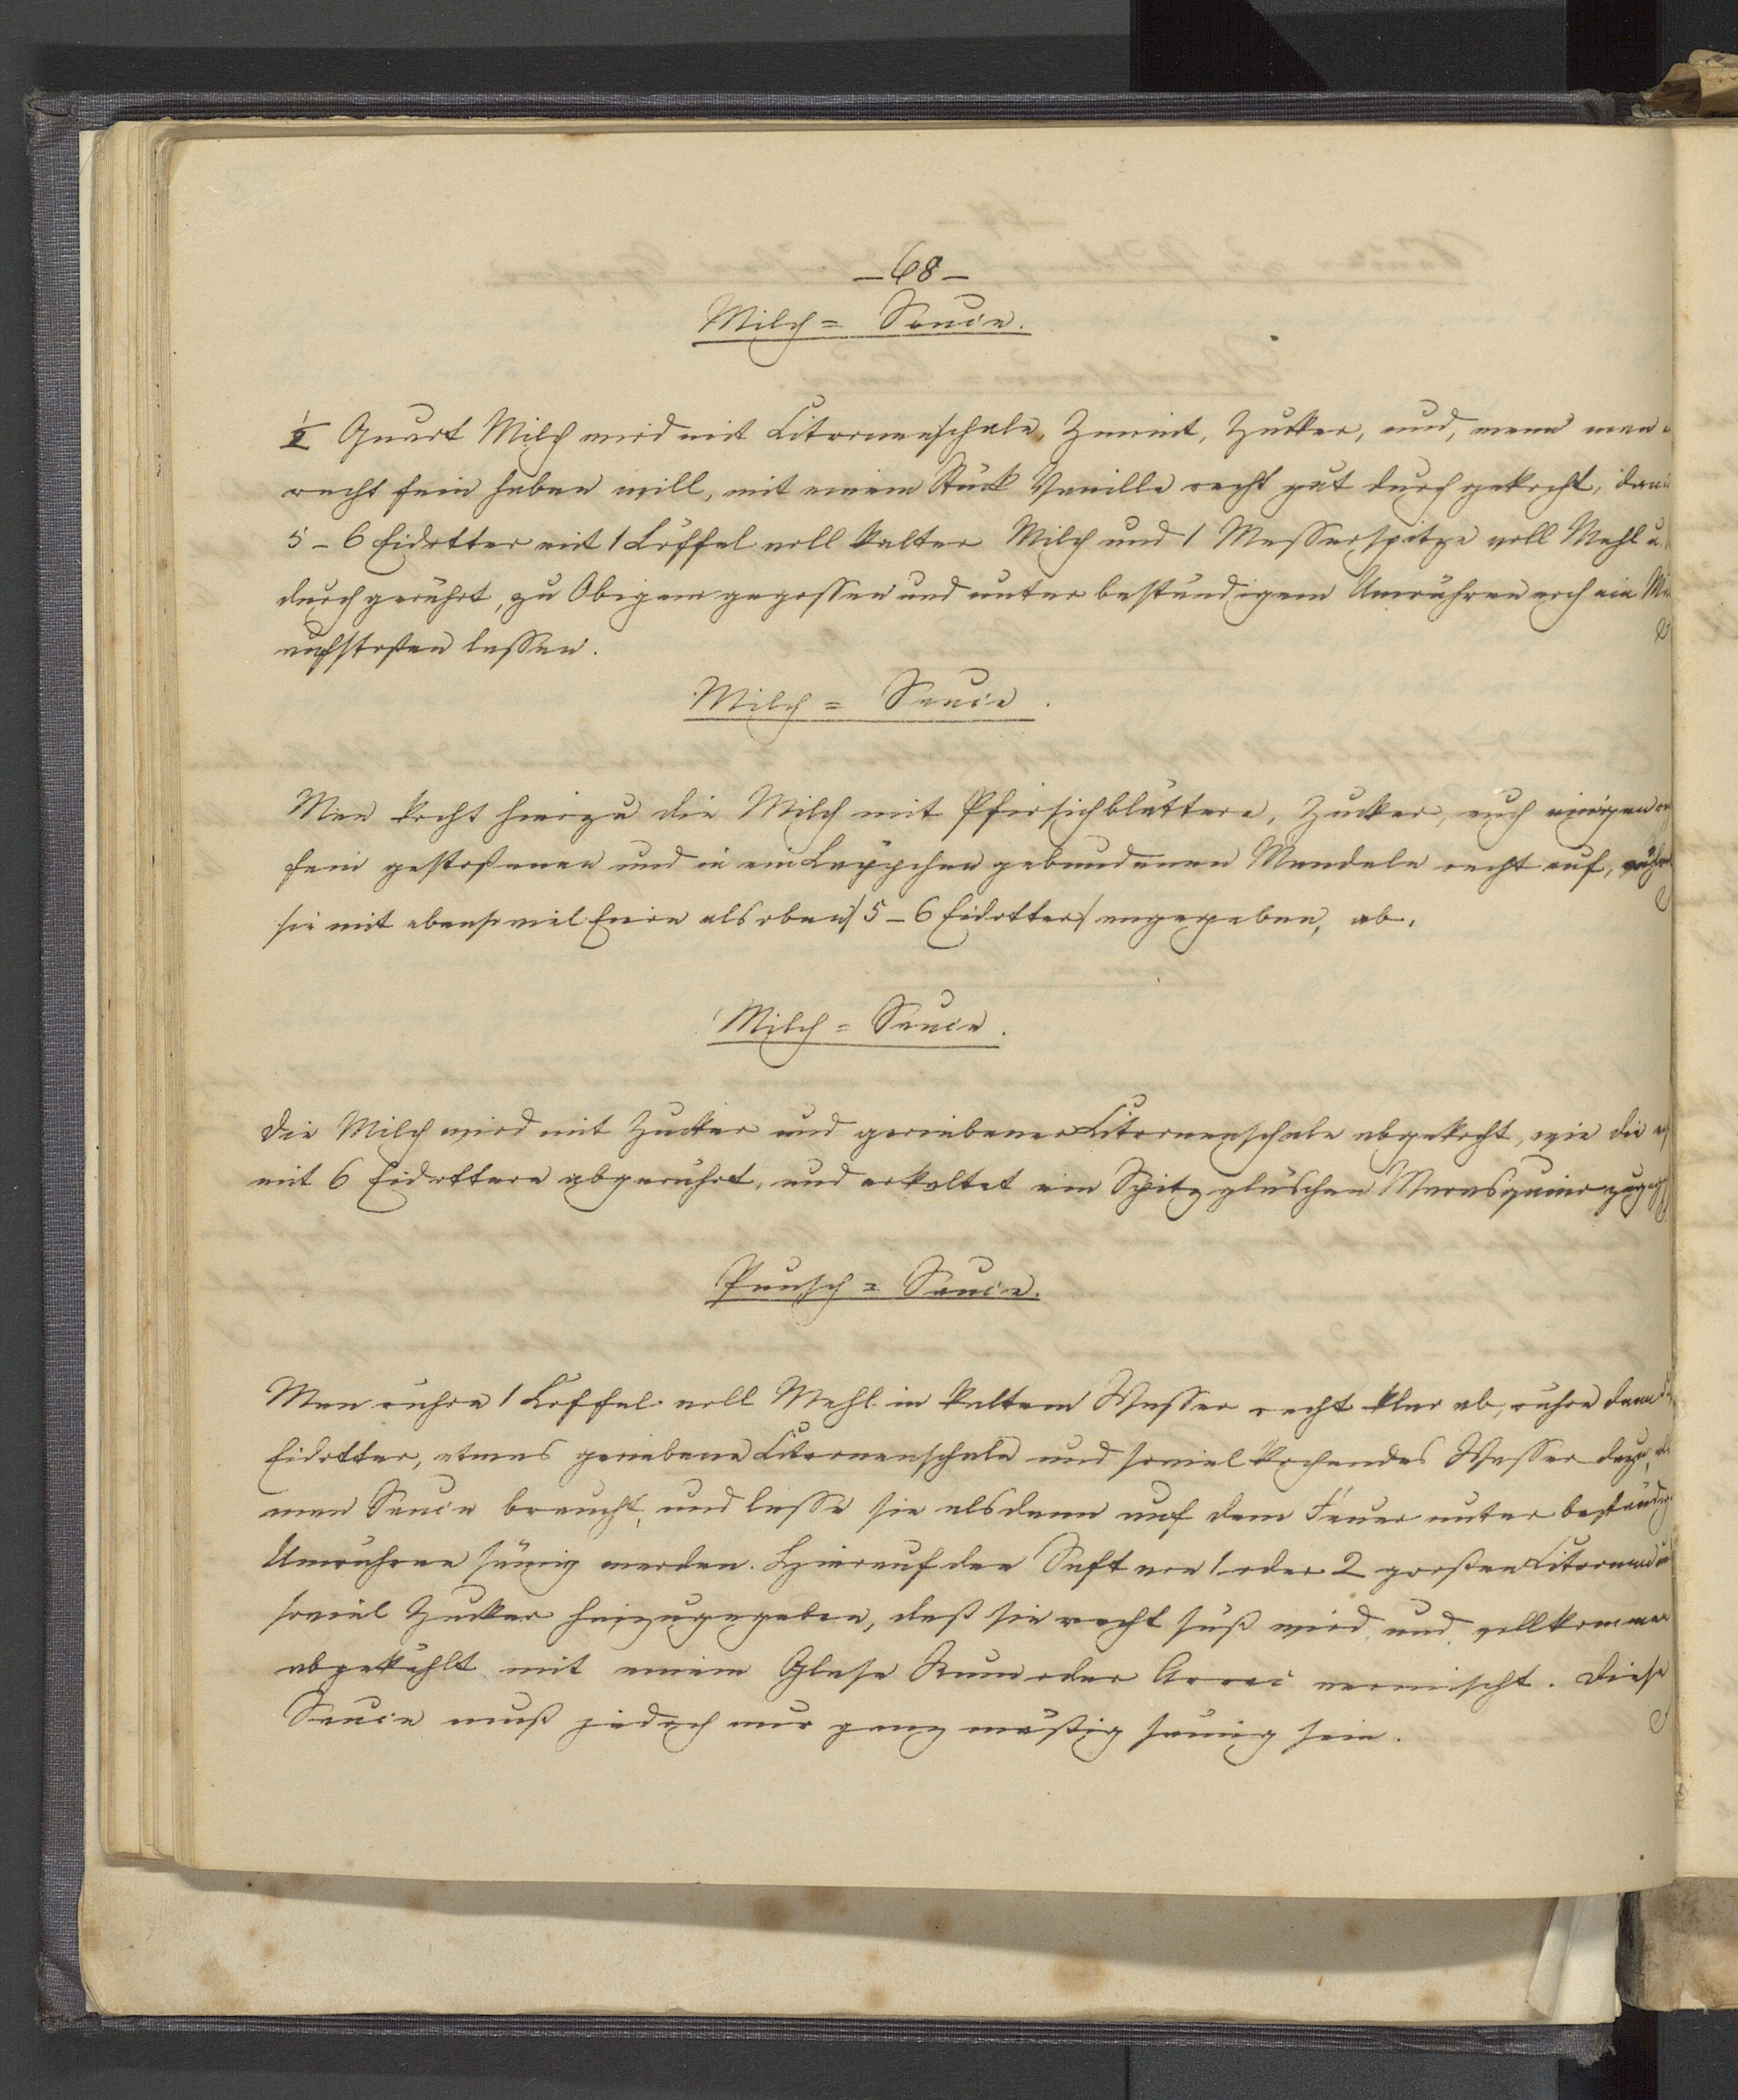 — 68 —
Milch= Sauce.
½ Quart Milch wird mit Citronenschale, Zimmt, Zucker, und, wenn man
recht fein haben will, mit einem Stück Vanille recht gut durch gekocht, dann
5 – 6 Eidotter mit 1 Löffel voll kalter Milch und 1 Messerspitze voll Mehl
durch gerührt, zu Obigem gegossen und unter beständigem Umrühren noch ein
aufstoßen lassen.
Milch = Sauce.
Man kocht hierzu die Milch mit Pfirsichblättern, Zucker, auch einigen
fein gestoßenen und in ein Läppchen gebundenen Mandeln recht auf, rührt
sie mit ebensoviel Eiern als oben /5 – 6 Eidotter/ angegeben, ab.
Milch = Sauce.
Die Milch wird mit Zucker und geriebener Citronenschale abgekocht, wie die
mit 6 Eidottern abgerührt, und erkaltet ein Spitzgläschen Marasquino
Punsch = Sauce.
Man rühre 1 Löffel voll Mehl in kaltem Wasser recht klar ab, rühre dann
Eidotter, etwas geriebene Citronenschale und soviel kochendes Wasser dazu, als
man Sauce braucht, und lasse sie alsdann auf dem Feuer unter beständig.
Umrühren sämig werden. Hierauf den Saft von 1 oder 2 großen Citronen
soviel Zucker hinzugegeben, daß sie recht süß wird und vollkommen
abgekühlt mit einem Glase Rum oder Arrac vermischt. Diese
Sauce muß jedoch nur ganz mäßig sämig sein.